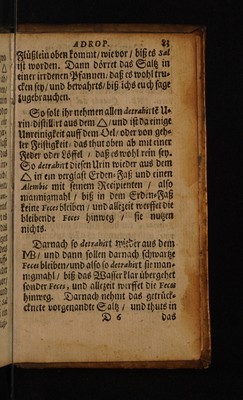 ADROP. 83
Flüßlein oben kommt/ wie vor / biß es Sal
ist worden. Dann dörret das Saltz in
einer irrdenen Pfannen/ daß es wohl tru-
cken sey/ und bewahrts/ biß ichs euch sage
zugebrauchen.
So solt ihr nehmen allen detrahirtē U-
rin/ distillirt aus dem △/ und ist da einige
Unreinigkeit auff dem Oel/ oder von geh-
ler Feistigkeit/ das thut oben ab mit einer
Feder oder Löffel / daß es wohl rein sey.
So detrahirt diesen Urin wieder aus dem
△ in ein verglast Erden-Faß und einen
Alembic mit seinem Recipienten / also
mannigmahl / biß in dem Erden-Faß
keine Feces bleiben / und allezeit werfft die
bleibende Feces hinweg / sie nutzen
nichts.
Darnach so detrahirt wieder aus dem
MB/ und dann sollen darnach schwartze
Feces bleiben/und also so detrahirt sie man-
nigmahl / biß das Wasser klar übergehet
sonder Feces, und allezeit werffet die Feces
hinweg. Darnach nehmt das getrück-
cknete vorgenandte Saltz / und thuts in
D 6 das